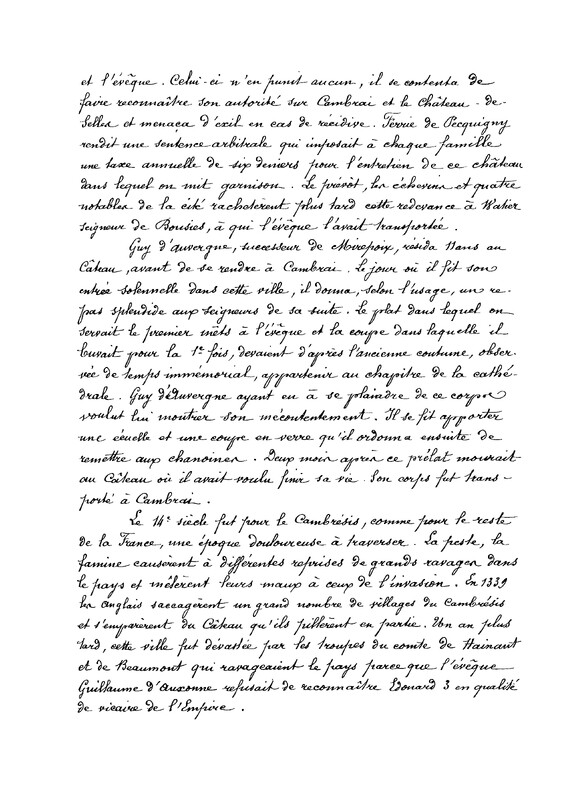 et l'évêque. Celui-ci n'en punit aucun, il se contenta de
faire reconnaître son autorité sur Cambrai et le Château-de-
Selles et menaça d'exil en cas de récidive. Ferrie de Pecquigny
rendit une sentence arbitrale qui imposait à chaque famille
une taxe annuelle de six deniers pour l'entretien de ce château
dans lequel on mit garnison. Le prévôt, les échevins et quatre
notables de la cité rachetèrent plus tard cette redevance à Watier
seigneur de Bousies, à qui l'évêque l'avait transportée.
Guy d'auvergne, successeur de Mirepoix, résida 11ans au
Câteau, avant de se rendre à Cambrai. Le jour où il fit son
entrée solennelle dans cette ville, il donna, selon l'usage, un re-
pas splendide aux seigneurs de sa suite. Le plat dans lequel on
servait le premier mêts à l'évêque et la coupe dans laquelle il
buvait pour la 1e fois, devaient d'après l'ancienne coutume, obser-
vée de temps immémorial, appartenir au chapitre de la cathé-
drale. Guy d'Auvergne ayant eu à se plaindre de ce corps
voulut lui montrer son mécontentement. Il se fit apporter
une écuelle et une coupe en verre qu'il ordonna ensuite de
remettre aux chanoines. Deux mois après ce prélat mourait
au Câteau où il avait voulu finir sa vie. Son corps fut trans-
porté à Cambrai.
Le 14e siècle fut pour le Cambrésis, comme pour le reste
de la France, une époque douloureuse à traverser. La peste, la
famine causèrent à différentes reprises de grands ravages dans
le pays et mêlèrent leurs maux à ceux de l'invasion. En 1339
les anglais saccagèrent un grand nombre de villages du Cambrésis
et s'emparèrent du Câteau qu'ils pillèrent en partie. Un an plus
tard, cette ville fut dévastée par les troupes du comte de Hainaut
et de Beaumont qui ravageaient le pays parce que l'évêque
Guillaume d'auxonne refusait de reconnaître Edouard 3 en qualité
de vicaire de l'Empire.